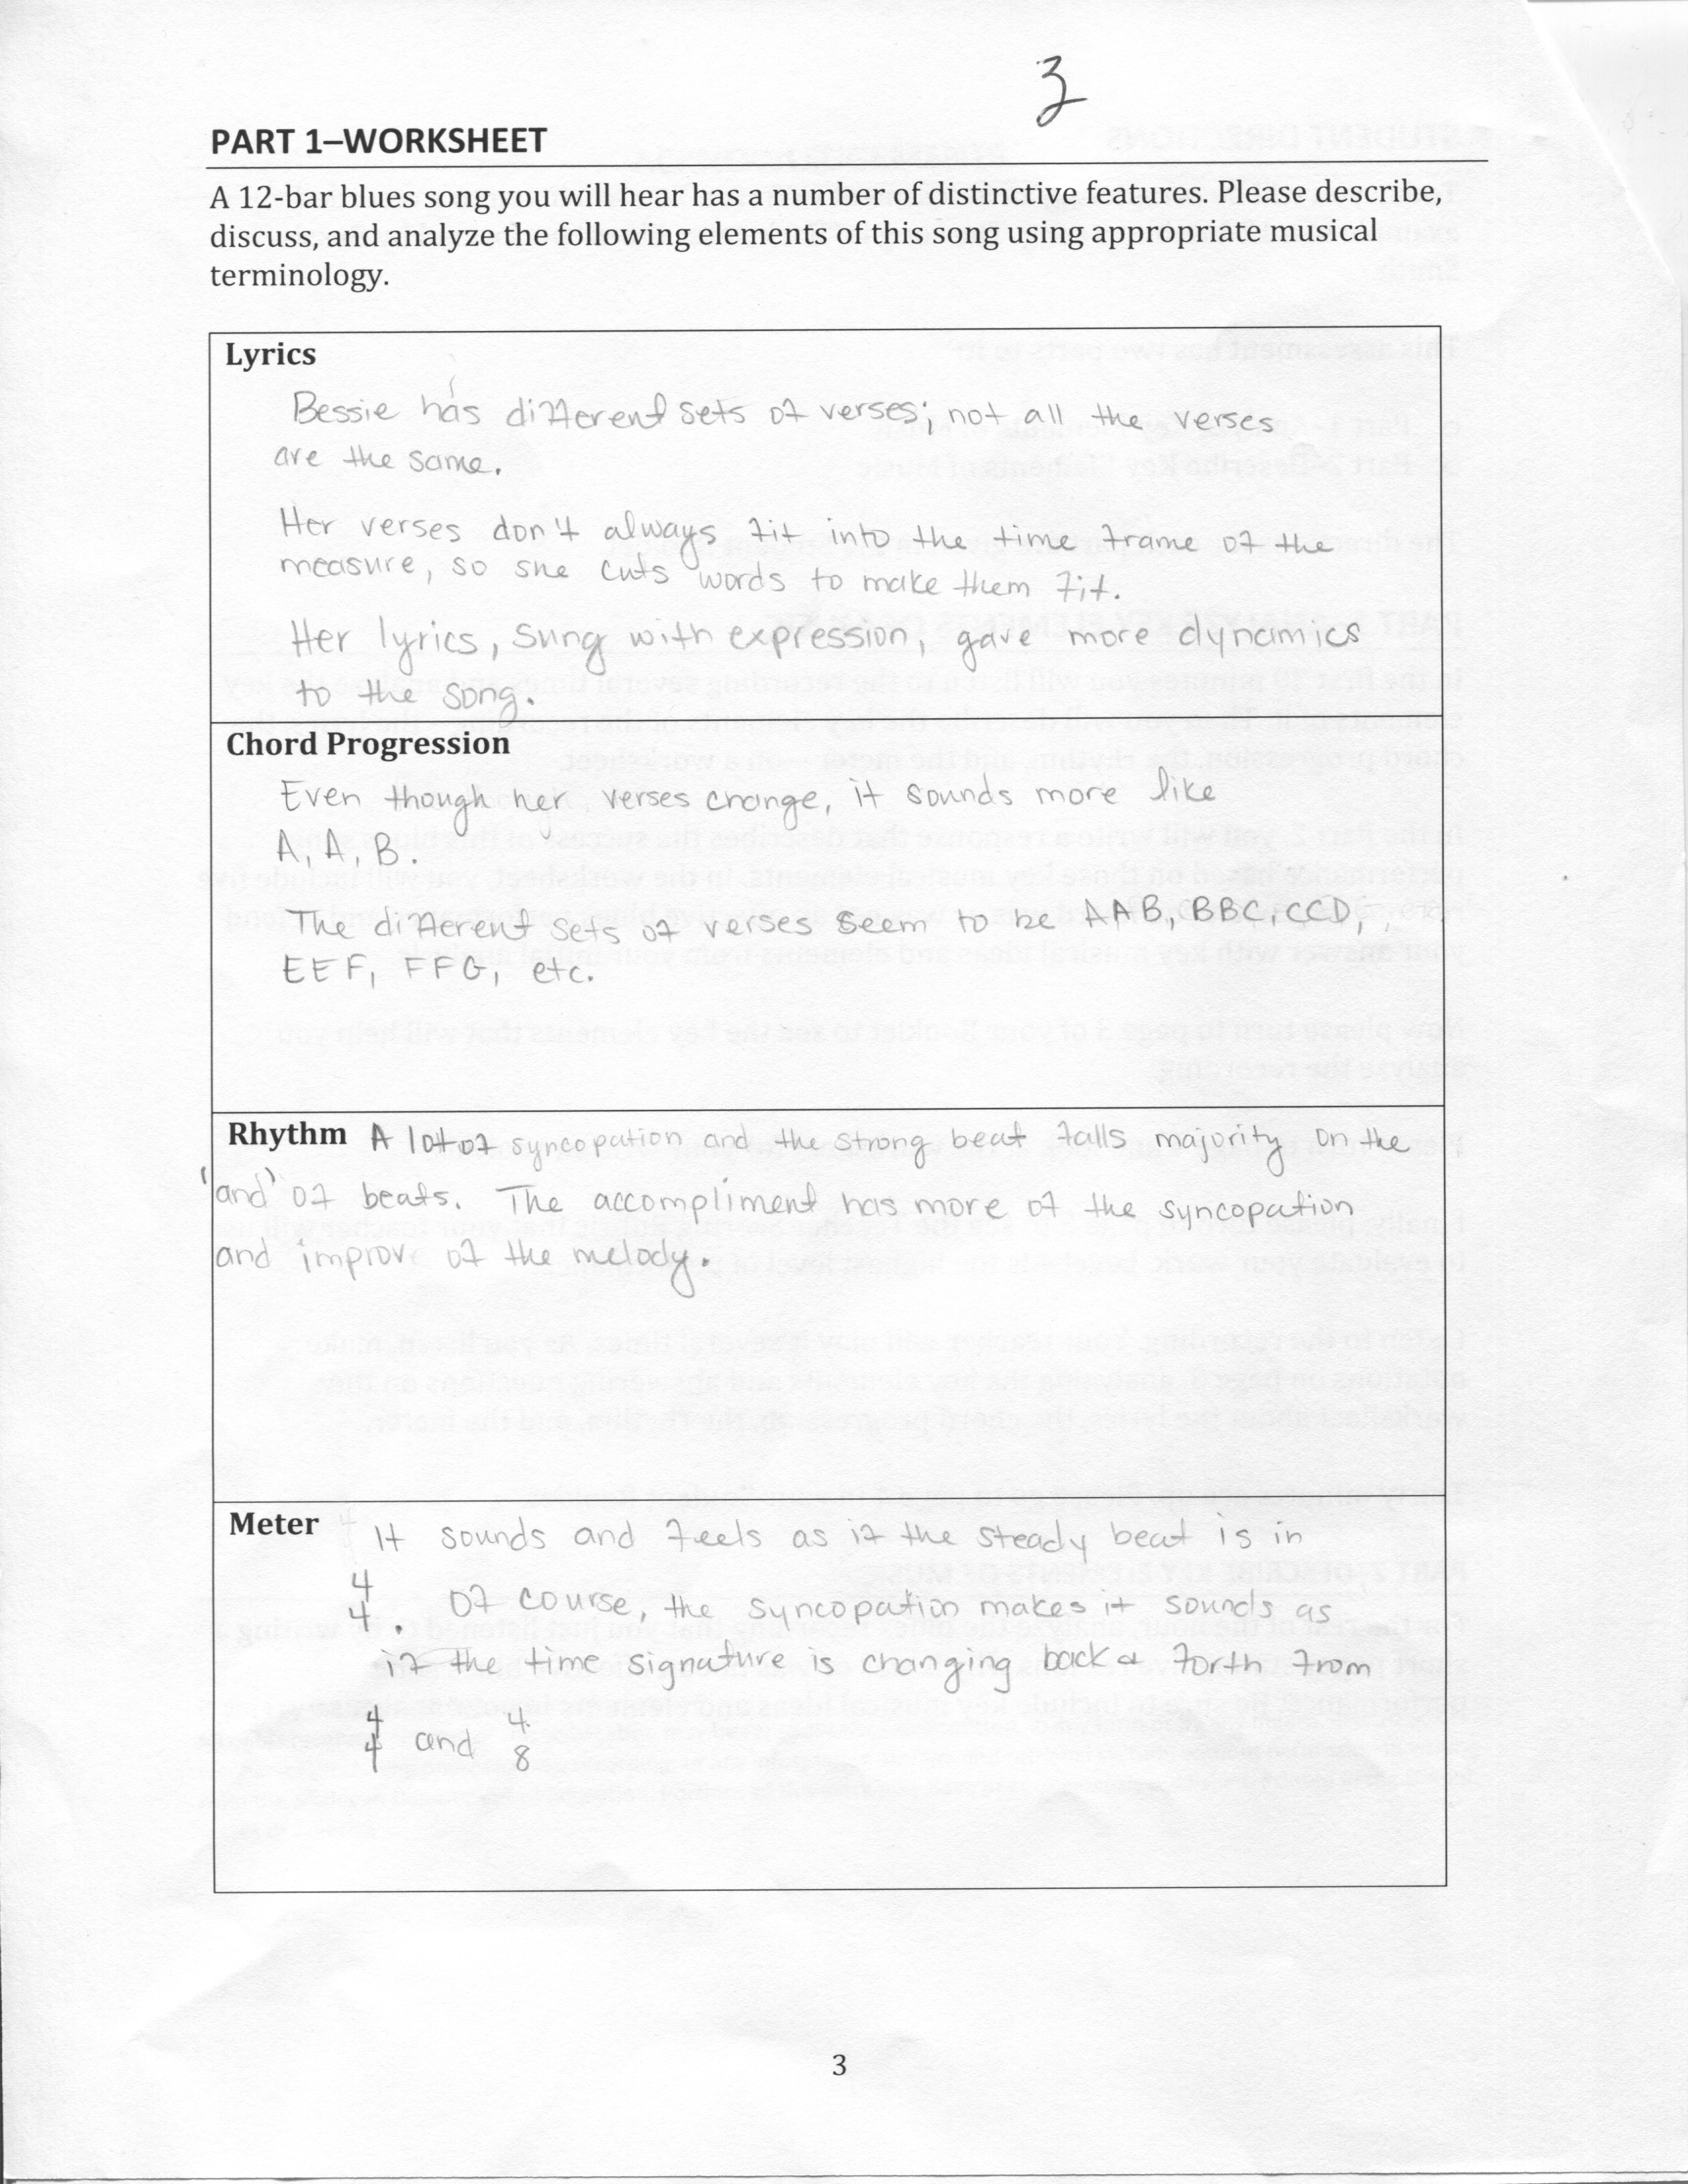 3
PART 1–WORKSHEET
A 12-bar blues song you will hear has a number of distinctive features. Please describe,
discuss, and analyze the following elements of this song using appropriate musical
terminology.
Lyrics
Bessie has different sets of verses; not all the verses
are the same.
Her verses don't always fit into the time frame of the
measure, so she cuts words to make them fit.
Her lyrics, sung with expression, gave more dynamics
to the song.
Chord Progression
Even though her verses change, it sounds more like
A, A, B.
The different sets of verses seem to be AAB, BBC, CCD,
EEF, FFG, etc.
Rhythm A lot of syncopation and the strong beat falls majority on the
'and' of beats. The accompliment has more of the syncopation
and improv of the melody.
Meter It sounds and feels as if the steady beat is in
4/4. Of course, the syncopation makes it sounds as
if the time signature is changing back & forth from
4/4 and 4/8
3